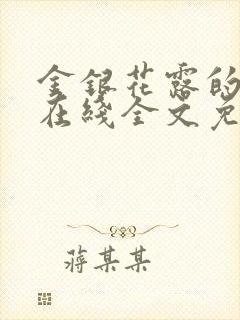 金银花露的
在线全文免
蒋某某